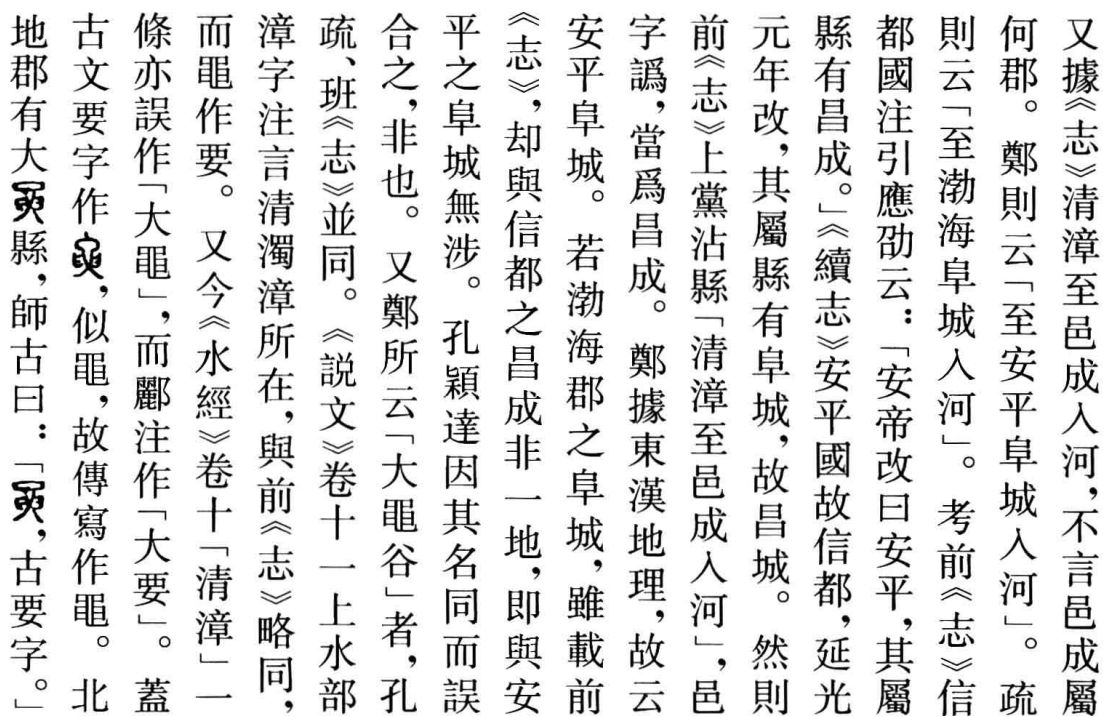 又據《志》清漳至邑成入河，不言邑成屬
何郡。鄭則云「至安平阜城入河」。疏
則云「至渤海阜城入河」。考前《志》信
都國注引應劭云：「安帝改曰安平，其屬
縣有昌成。」《續志》安平國故信都，延光
元年改，其屬縣有阜城，故昌城。然則
前《志》上黨沾縣「清漳至邑成入河」，邑
字譌，當爲昌成。鄭據東漢地理，故云
安平阜城。若渤海郡之阜城，雖載前
《志》，却與信都之昌成非一地，即與安
平之阜城無涉。孔穎達因其名同而誤
合之，非也。又鄭所云「大黽谷」者，孔
疏、班《志》並同。《説文》卷十一上水部
漳字注言清濁漳所在，與前《志》略同，
而黽作要。又今《水經》卷十「清漳」一
條亦誤作「大黽」，而酈注作「大要」。蓋
古文要字作，似黽，故傳寫作黽。北
地郡有大縣，師古曰：「，古要字。」